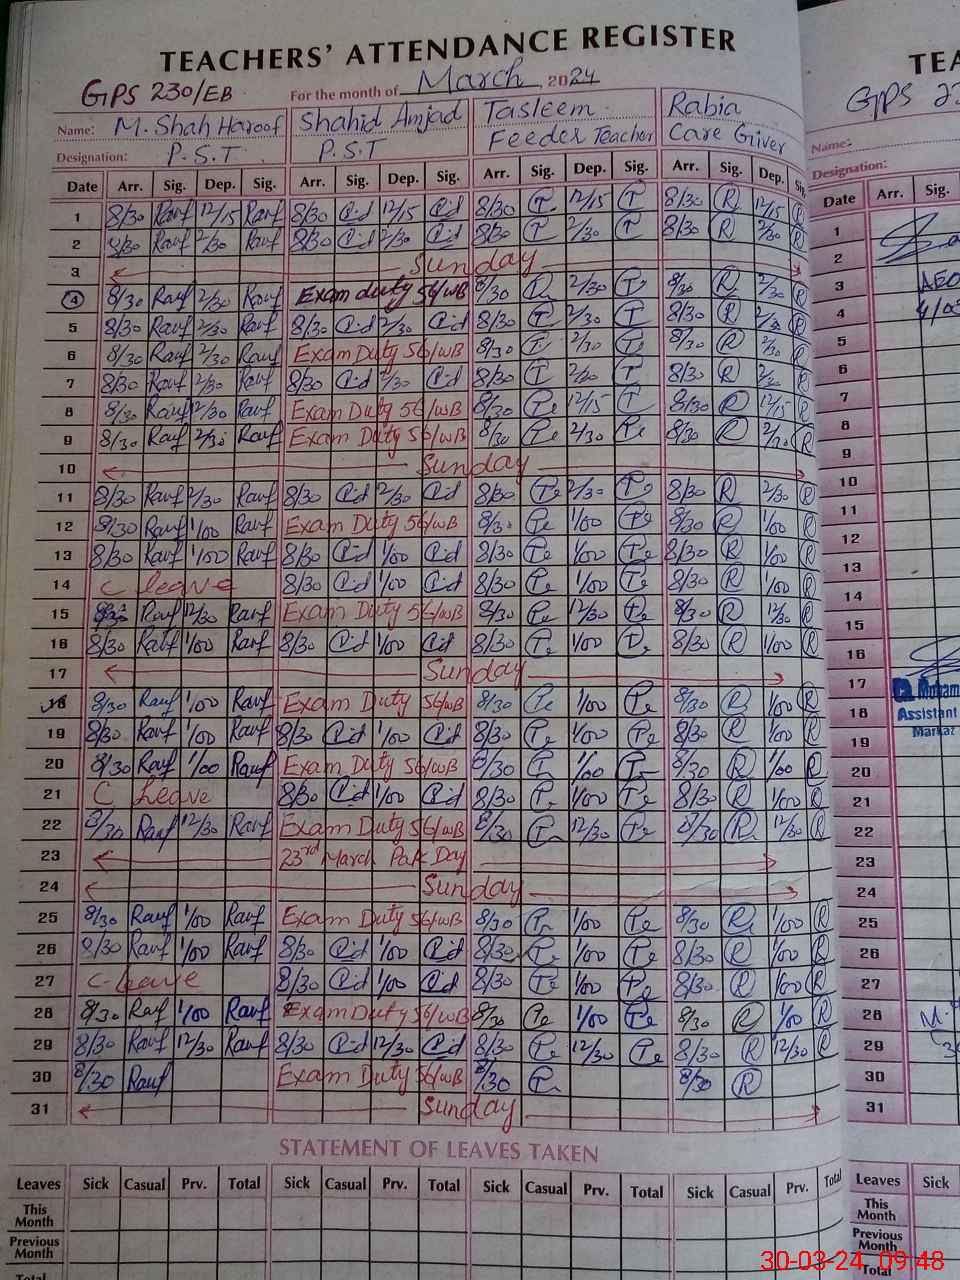 TEACHERS' ATTENDANCE REGISTER
GPS 230/EB For the month of March, 2024
Name: M. Shah Haroof Shahid Amjad Tasleem Rabia
Designation: P.S.T P.S.T Feeder Teacher Care Giver
Date Arr. Sig. Dep. Sig. Arr. Sig. Dep. Sig. Arr. Sig. Dep. Sig. Arr. Sig. Dep. Sig.
1 8/30 Rauf 12/15 Rauf 8/30 12/15 8/30 T 12/15 T 8/30 R 12/15 R
2 8/30 Rauf 2/30 Rauf 8/30 2/30 8/30 T 2/30 T 8/30 R 2/30 R
3 Sunday
4 8/30 Rauf 2/30 Rauf Exam duty 56/WB 8/30 2/30 8/30 R 2/30 R
5 8/30 Rauf 2/30 Rauf 8/30 2/30 8/30 T 2/30 T 8/30 R 2/30 R
6 8/30 Rauf 2/30 Rauf Exam Duty 56/WB 8/30 T 2/30 T 8/30 R 2/30 R
7 8/30 Rauf 2/30 Rauf 8/30 2/30 8/30 T 2/30 T 8/30 R 2/30 R
8 8/30 Rauf 2/30 Rauf Exam Duty 56/WB 8/30 Te 12/15 T 8/30 R 12/15 R
9 8/30 Rauf 2/30 Rauf Exam Duty 56/WB 8/30 Te 2/30 Te 8/30 R 2/30 R
10 Sunday
11 8/30 Rauf 2/30 Rauf 8/30 2/30 8/30 Te 2/30 Te 8/30 R 2/30 R
12 8/30 Rauf 1/00 Rauf Exam Duty 56/WB 8/30 Te 1/00 Te 8/30 R 1/00 R
13 8/30 Rauf 1/00 Rauf 8/30 1/00 8/30 Te 1/00 Te 8/30 R 1/00 R
14 C leave 8/30 1/00 8/30 Te 1/00 Te 8/30 R 1/00 R
15 8/30 Rauf 12/30 Rauf Exam Duty 56/WB 8/30 Te 12/30 Te 8/30 R 12/30 R
16 8/30 Rauf 1/00 Rauf 8/30 1/00 8/30 T 1/00 T 8/30 R 1/00 R
17 Sunday
18 8/30 Rauf 1/00 Rauf Exam Duty 56/WB 8/30 Te 1/00 Te 8/30 R 1/00 R
19 8/30 Rauf 1/00 Rauf 8/30 1/00 8/30 Te 1/00 Te 8/30 R 1/00 R
20 8/30 Rauf 1/00 Rauf Exam Duty 56/WB 8/30 1/00 8/30 R 1/00 R
21 C Leave 8/30 1/00 8/30 1/00 Te 8/30 R 1/00 R
22 8/30 Rauf 12/30 Rauf Exam Duty 56/WB 8/30 12/30 Te 8/30 R 12/30 R
23 23rd March Pak Day
24 Sunday
25 8/30 Rauf 1/00 Rauf Exam Duty 56/WB 8/30 1/00 Te 8/30 R 1/00 R
26 8/30 Rauf 1/00 Rauf 8/30 1/00 8/30 Te 1/00 Te 8/30 R 1/00 R
27 C-leave 8/30 1/00 8/30 Te 1/00 Te 8/30 R 1/00 R
28 8/30 Rauf 1/00 Rauf Exam Duty 56/WB 8/30 Te 1/00 Te 8/30 R 1/00 R
29 8/30 Rauf 12/30 Rauf 8/30 12/30 8/30 Te 12/30 Te 8/30 R 12/30 R
30 8/30 Rauf Exam Duty 56/WB 8/30 8/30 R
31 Sunday
STATEMENT OF LEAVES TAKEN
Leaves Sick Casual Prv. Total Sick Casual Prv. Total Sick Casual Prv. Total Sick Casual Prv. Total
This Month
Previous Month
Total
TEA
GPS 23
Name:
Designation:
Date Arr. Sig.
1
2
3 AEO
4
5
6
7
8
9
10
11
12
13
14
15
16
17 Muham
18 Assistant
19 Markaz
20
21
22
23
24
25
26
27
28 M.
29
30
31
Leaves Sick
This Month
Previous Month
Total
30-03-24, 09:48